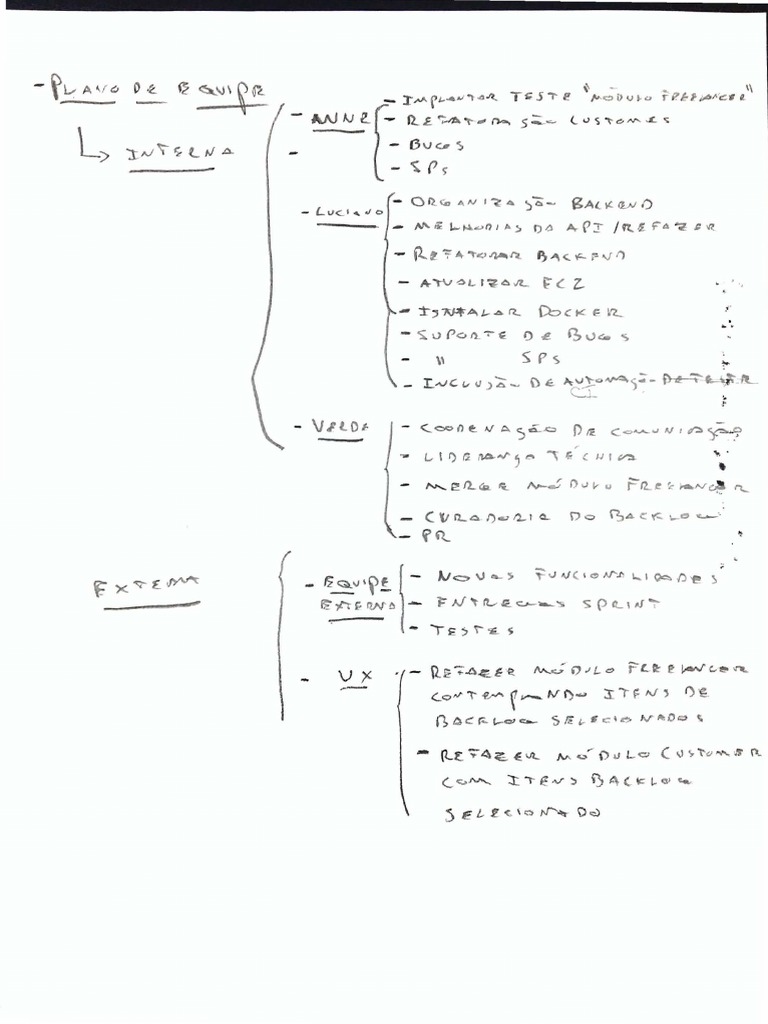 - PLANO DE EQUIPE
↳ INTERNA
- ANNE
- IMPLANTAR TESTE "MÓDULO FREELANCER"
- REFATORAÇÃO CUSTOMES
- BUGS
- SPs
-
- LUCIANO
- ORGANIZAÇÃO BACKEND
- MELHORIAS DA API / REFAZER
- REFATORAR BACKEND
- ATUALIZAR EC2
- ISNTALAR DOCKER
- SUPORTE DE BUGS
- " SPs
- INCLUSÃO DE AUTOMAÇÃO DE TESTE
- VERDE
- COODENAÇÃO DE COMUNICAÇÃO
- LIDERANÇA TÉCNICA
- MERGE MÓDULO FREELANCER
- CURADORIA DO BACKLOG
- PR
EXTERNA
- EQUIPE
EXTERNA
- NOVAS FUNCIONALIDADES
- ENTREGAS SPRINT
- TESTES
- UX
- REFAZER MÓDULO FREELANCER
CONTEMPLANDO ITENS DE
BACKLOG SELECIONADOS
- REFAZER MÓDULO CUSTOMER
COM ITENS BACKLOG
SELECIONADO